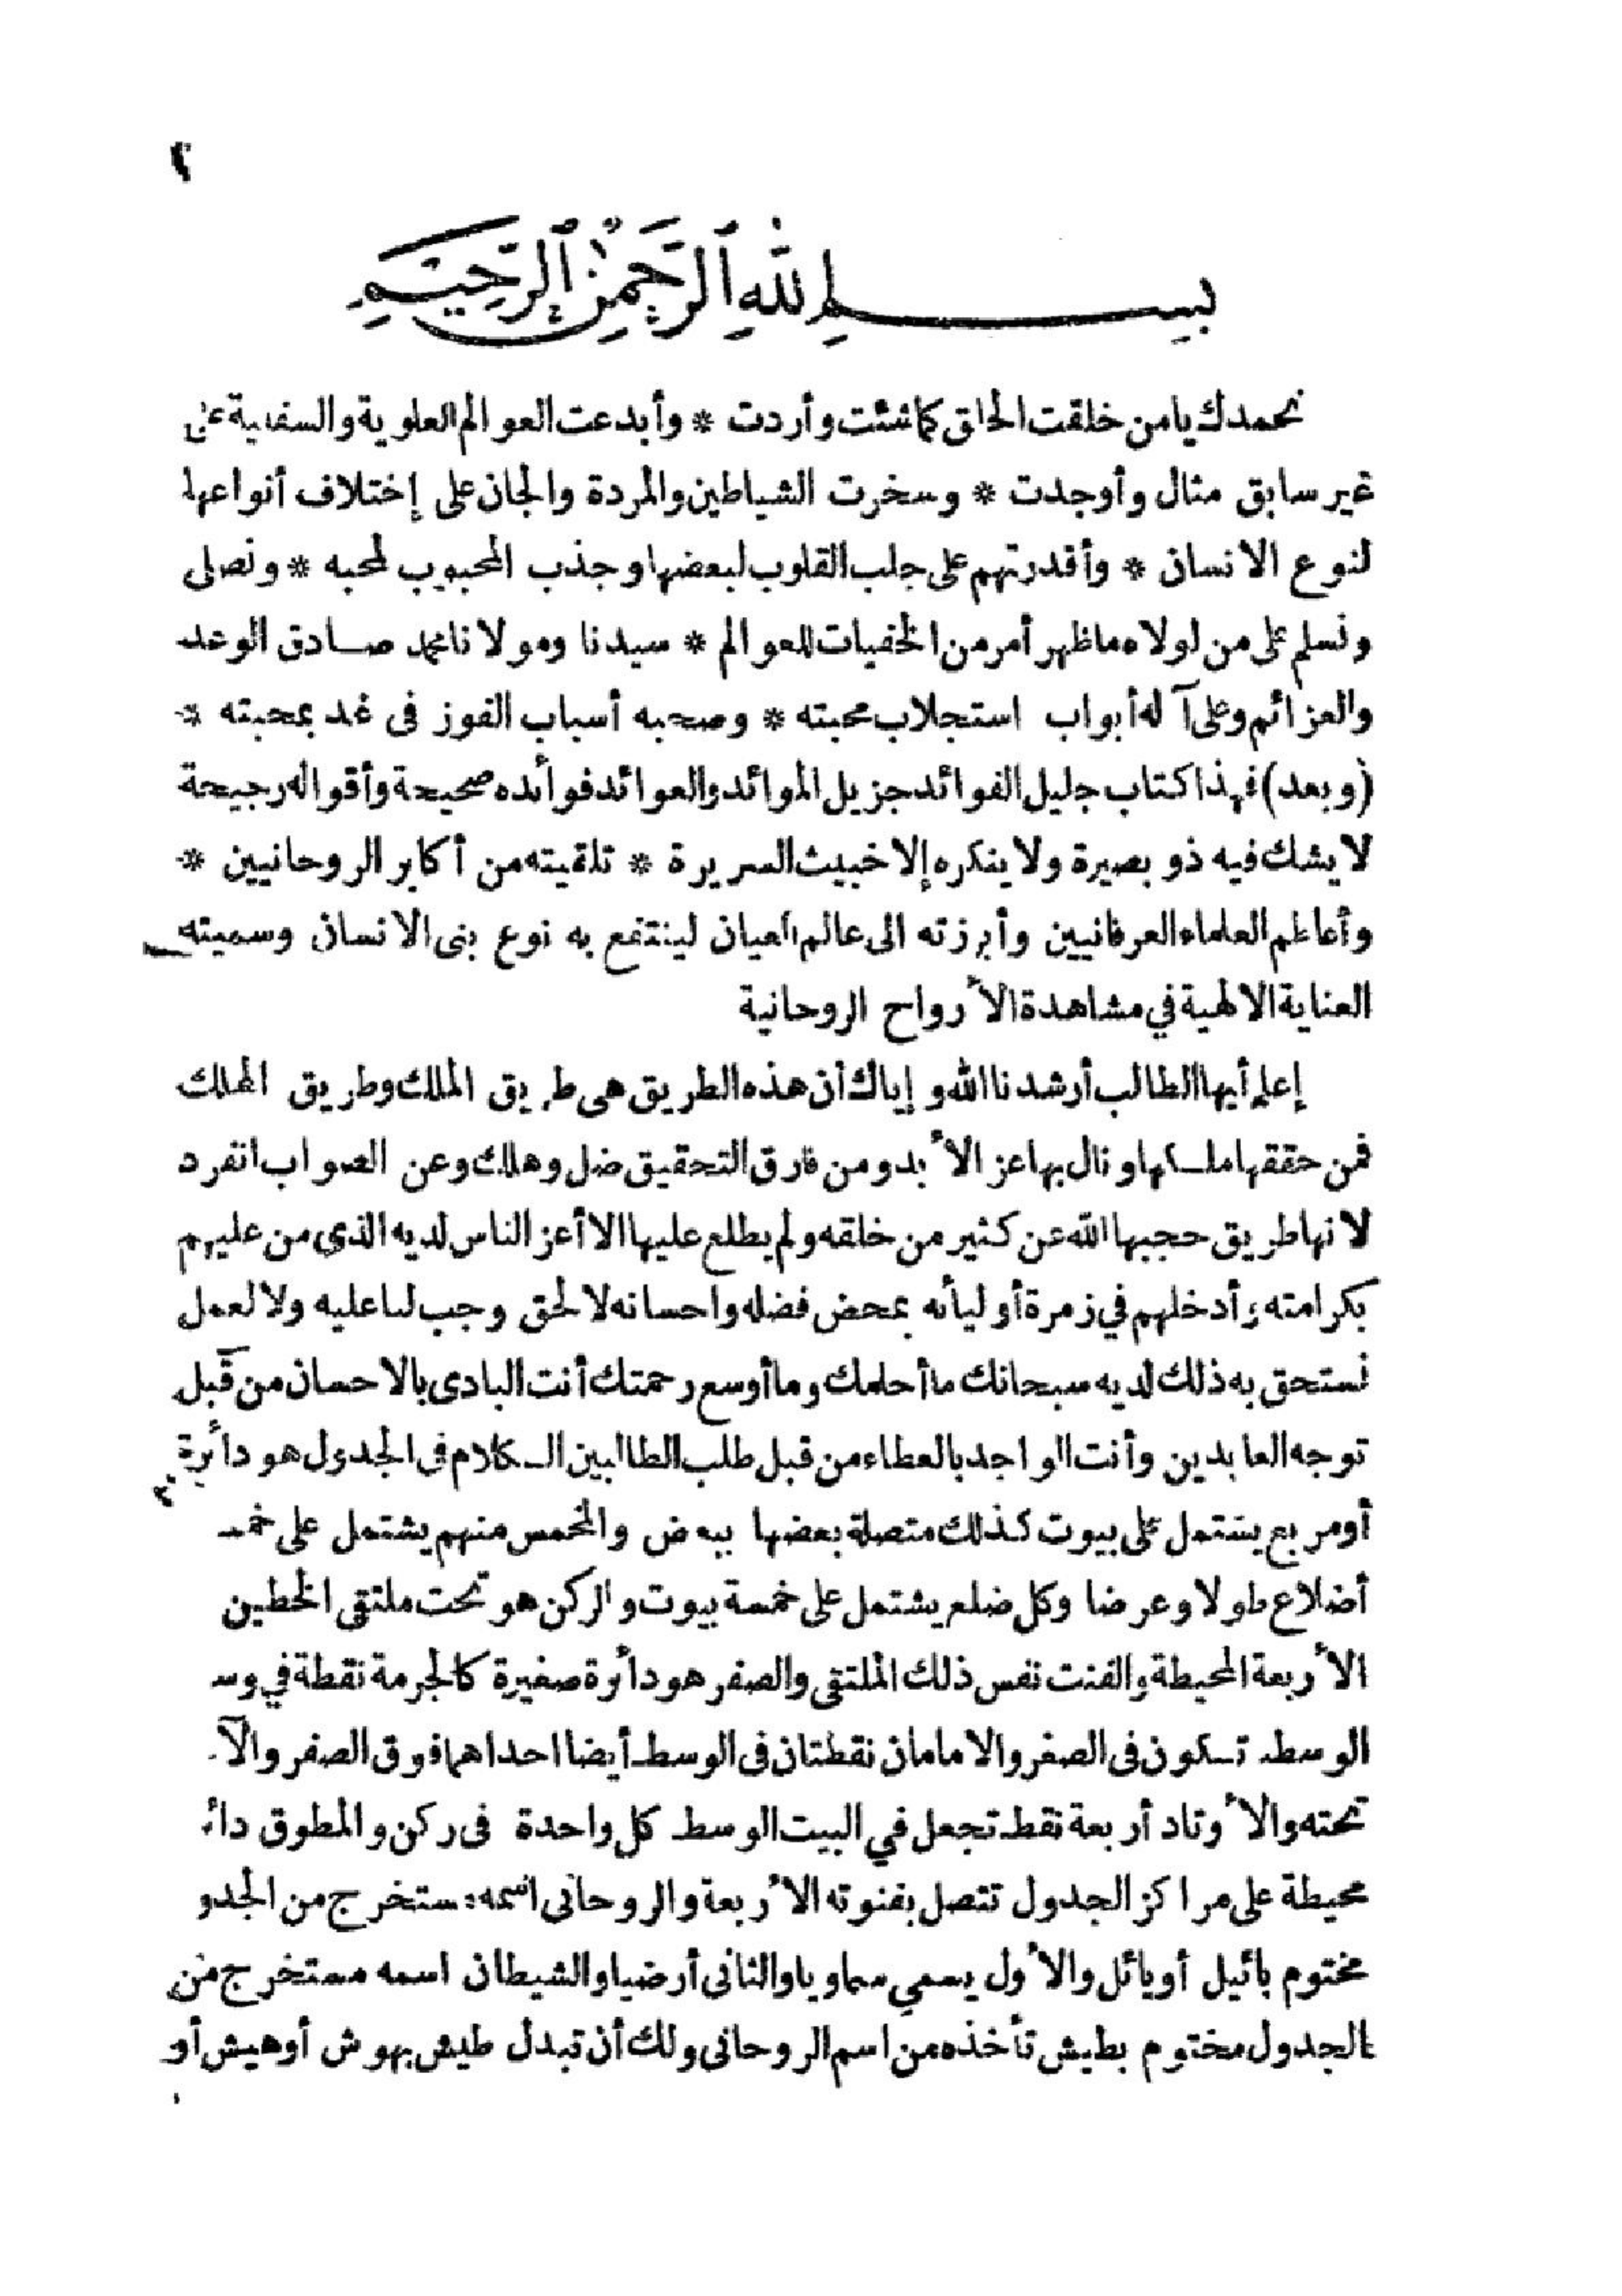 ٢
بسم الله الرحمن الرحيم
نحمدك يا من خلقت الخلق كما شئت وأردت * وأبدعت العوالم العلوية والسفلية على
غير سابق مثال وأوجدت * وسخرت الشياطين والمردة والجان على إختلاف أنواعها
لنوع الانسان * وأقدرتهم على جلب القلوب لبعضها وجذب المحبوب لمحبه * ونصلى
ونسلم على من لولاه ما ظهر أمر من الخفيات للعوالم * سيدنا ومولانا محمد صادق الوعد
والعزائم وعلى آله أبواب استجلاب محبته * وصحبه أسباب الفوز فى غد بمحبته *
(وبعد) فهذا كتاب جليل الفوائد جزيل الموائد والعوائد فوائده صحيحة وأقواله رجيحة
لا يشك فيه ذو بصيرة ولا ينكره إلا خبيث السريرة * تلقيته من أكابر الروحانيين *
وأعاظم العلماء العرفانيين وأبرزته الى عالم العيان لينتفع به نوع بنى الانسان وسميته
العناية الالهية في مشاهدة الأرواح الروحانية
إعلم أيها الطالب أرشدنا الله وإياك أن هذه الطريق هى طريق الملك وطريق الهلك
فمن حققها ملكها ونال بها عز الأبد ومن فارق التحقيق ضل وهلك وعن الصواب انفرد
لانها طريق حجبها الله عن كثير من خلقه ولم يطلع عليها الا أعز الناس لديه الذى من عليهم
بكرامته وأدخلهم في زمرة أوليائه بمحض فضله واحسانه لا لحق وجب لنا عليه ولا لعمل
نستحق به ذلك لديه سبحانك ما أحلمك وما أوسع رحمتك أنت البادى بالاحسان من قبل
توجه العابدين وأنت الواجد بالعطاء من قبل طلب الطالبين الكلام فى الجدول هو دائرة
أو مربع يشتمل على بيوت كذلك متصلة بعضها ببعض والمخمس منهم يشتمل على خمـ
أضلاع طولا وعرضا وكل ضلع يشتمل على خمسة بيوت والركن هو تحت ملتقى الخطين
الأربعة المحيطة والفنت نفس ذلك الملتقى والصفر هو دائرة صغيرة كالجرمة نقطة في وسـ
الوسط تكون فى الصفر والامامان نقطتان فى الوسط أيضا احداهما فوق الصفر والآ
تحته والأوتاد أربعة نقط تجعل في البيت الوسط كل واحدة فى ركن والمطوق دائـ
محيطة على مراكز الجدول تتصل بفنوته الأربعة والروحانى اسمه مستخرج من الجدو
مختوم بائيل أو يائل والأول يسمي سماويا والثانى أرضيا والشيطان اسمه مستخرج من
الجدول مختوم بطيش تأخذه من اسم الروحانى ولك أن تبدل طيش بهوش أو هيش أو